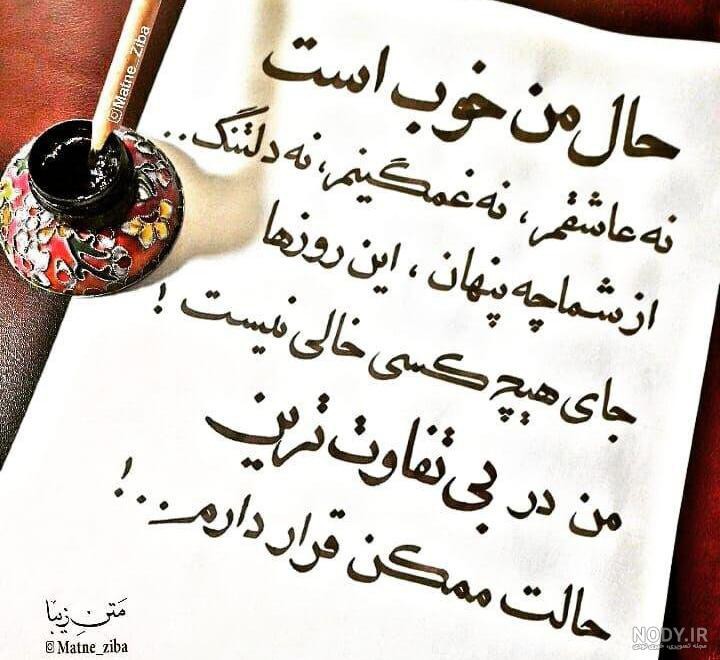 حال من خوب است
نه عاشقم، نه غمگینم، نه دلتنگ..
از شما چه پنهان، این روزها
جای هیچ کسی خالی نیست!
من در بی تفاوت ترین
حالت ممکن قرار دارم...!
متن زیبا
©Matne_ziba
©Matne_Ziba
NODY.IR